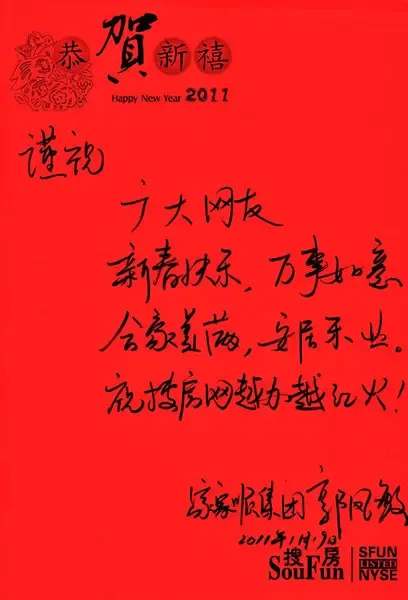 恭賀新禧
Happy New Year 2011
谨祝
广大网友
新春快乐，万事如意
合家美满，安居乐业。
祝搜房网越办越红火！
家家顺集团 郭风敏
2011年1月9日
搜房 SFUN
SouFun LISTED
NYSE